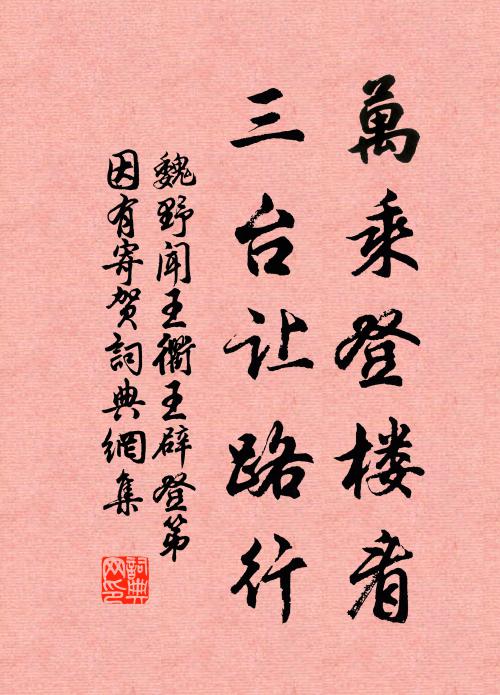 萬乘登楼看
三台让路行
魏野闻王衢王辟登第
因有寄贺詞典網集
詞典网印